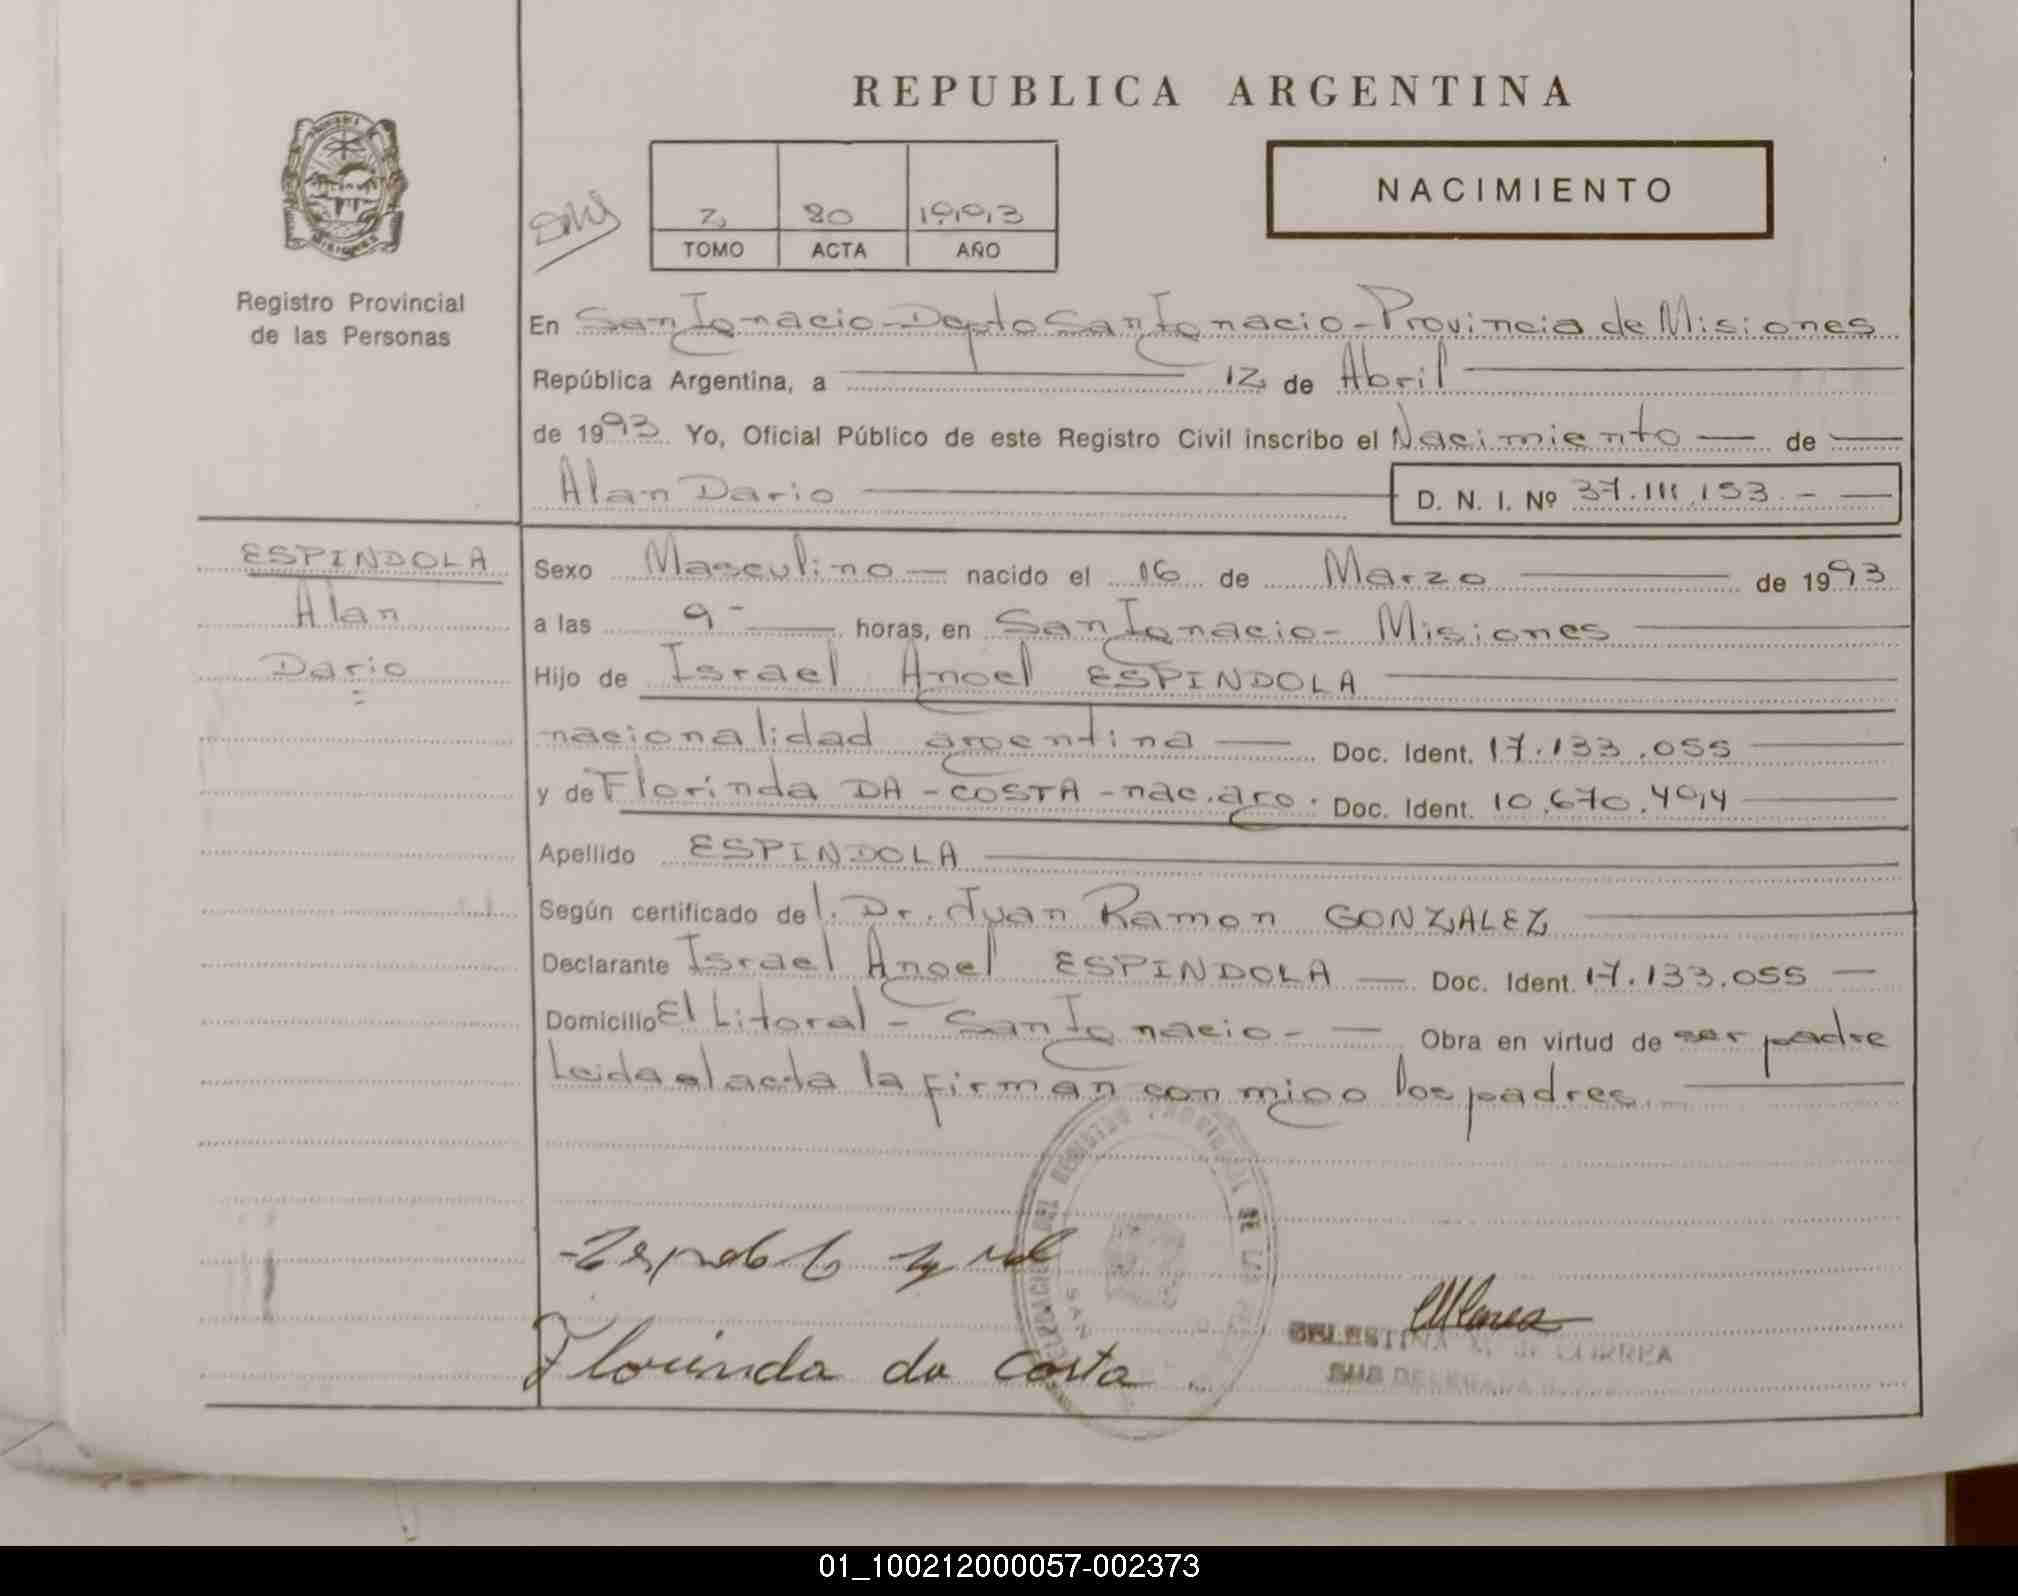 REPUBLICA ARGENTINA
NACIMIENTO
2 80 1993
TOMO ACTA AÑO
Registro Provincial
de las Personas
En San Ignacio - Depto San Ignacio - Provincia de Misiones
República Argentina, a 12 de Abril
de 1993 Yo, Oficial Público de este Registro Civil inscribo el Nacimiento de
Alan Dario D. N. I. Nº 37.111.153.-
ESPINDOLA
Alan
Dario
Sexo Masculino nacido el 16 de Marzo de 1993
a las 9 horas, en San Ignacio - Misiones
Hijo de Israel Angel ESPINDOLA
nacionalidad argentina Doc. Ident. 17.133.055
y de Florinda DA - COSTA - nac. arg. Doc. Ident. 10.670.494
Apellido ESPINDOLA
Según certificado del. Dr. Juan Ramon GONZALEZ
Declarante Israel Angel ESPINDOLA Doc. Ident. 17.133.055
Domicilio El Litoral - San Ignacio - Obra en virtud de ser padre
Leida el acta la firman con migo los padres
DEL REGISTRO PROVINCIAL DE LAS
SAN
Florinda da costa
CELESTINA M. de CORREA
SUB DELEGADA
01_100212000057-002373